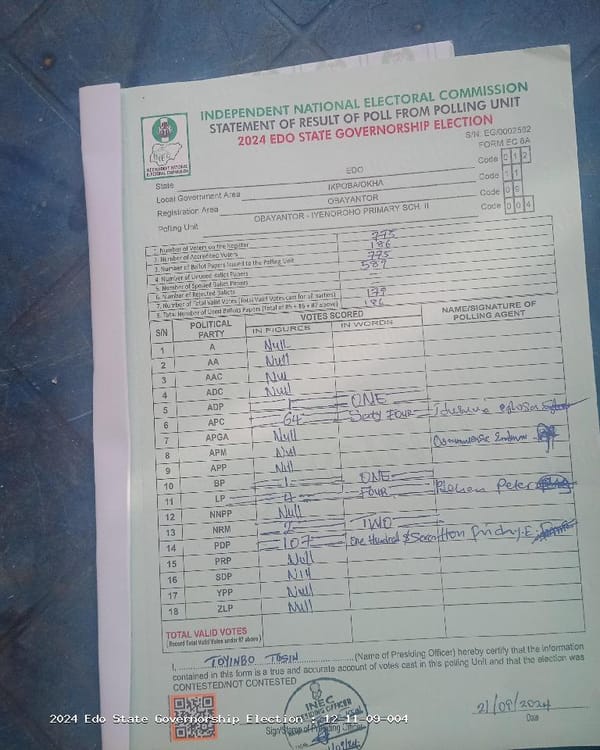 INDEPENDENT NATIONAL ELECTORAL COMMISSION
STATEMENT OF RESULT OF POLL FROM POLLING UNIT
2024 EDO STATE GOVERNORSHIP ELECTION
S/N: EG/0002502
FORM EC 8A
INEC
INDEPENDENT NATIONAL ELECTORAL COMMISSION
State EDO Code 0 1 2
Local Government Area IKPOBA/OKHA Code 1 1
Registration Area OBAYANTOR Code 0 9
Polling Unit OBAYANTOR - IYENOROHO PRIMARY SCH. II Code 0 0 4
1. Number of Voters on the Register 775
2. Number of Accredited Voters 186
3. Number of Ballot Papers Issued to the Polling Unit 775
4. Number of Unused Ballot Papers 589
5. Number of Spoiled Ballot Papers
6. Number of Rejected Ballots
7. Number of Total Valid Votes (Total Valid Votes cast for all parties) 179
8. Total Number of Used Ballots Papers (Total of #5 + #6 + #7 above) 186
S/N POLITICAL PARTY VOTES SCORED NAME/SIGNATURE OF POLLING AGENT
IN FIGURES IN WORDS
1 A Null
2 AA Null
3 AAC Nul
4 ADC Null
5 ADP 1 ONE
6 APC 64 Sixty FOUR
7 APGA Null
8 APM Nul
9 APP Nil
10 BP 1 ONE
11 LP 4 FOUR Peter
12 NNPP Null
13 NRM 2 TWO
14 PDP 107 One Hundred & Seven Hon Friday .E.
15 PRP Null
16 SDP Nil
17 YPP Null
18 ZLP Null
TOTAL VALID VOTES
(Record Total Valid Votes under #7 above)
I, TOYINBO TOSIN (Name of Presiding Officer) hereby certify that the information
contained in this form is a true and accurate account of votes cast in this polling Unit and that the election was
CONTESTED/NOT CONTESTED
INEC
Sign/Stamp of Presiding Officer
21/09/2024
Date
2024 Edo State Governorship Election : 12-11-09-004